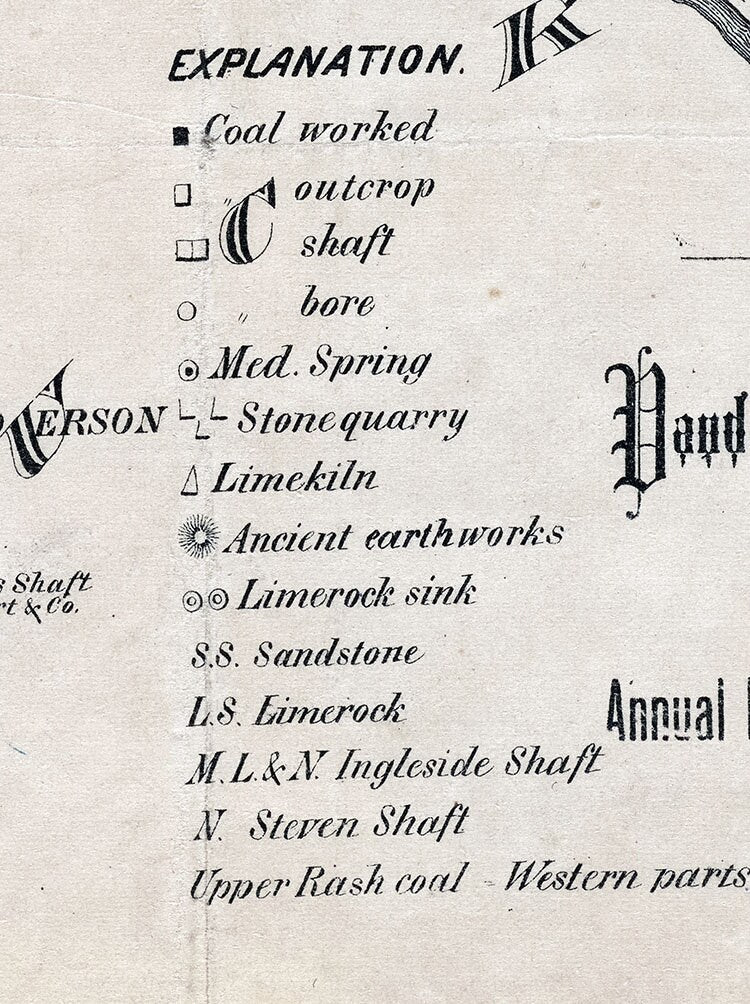 EXPLANATION.
K
Coal worked
„ outcrop
C
shaft
„ bore
Med. Spring
ERSON
Stone quarry
Limekiln
Ancient earthworks
s Shaft
rt & Co.
Limerock sink
S.S. Sandstone
L.S. Limerock
M.L.& N. Ingleside Shaft
N. Steven Shaft
Upper Rash coal - Western parts
and
Annual